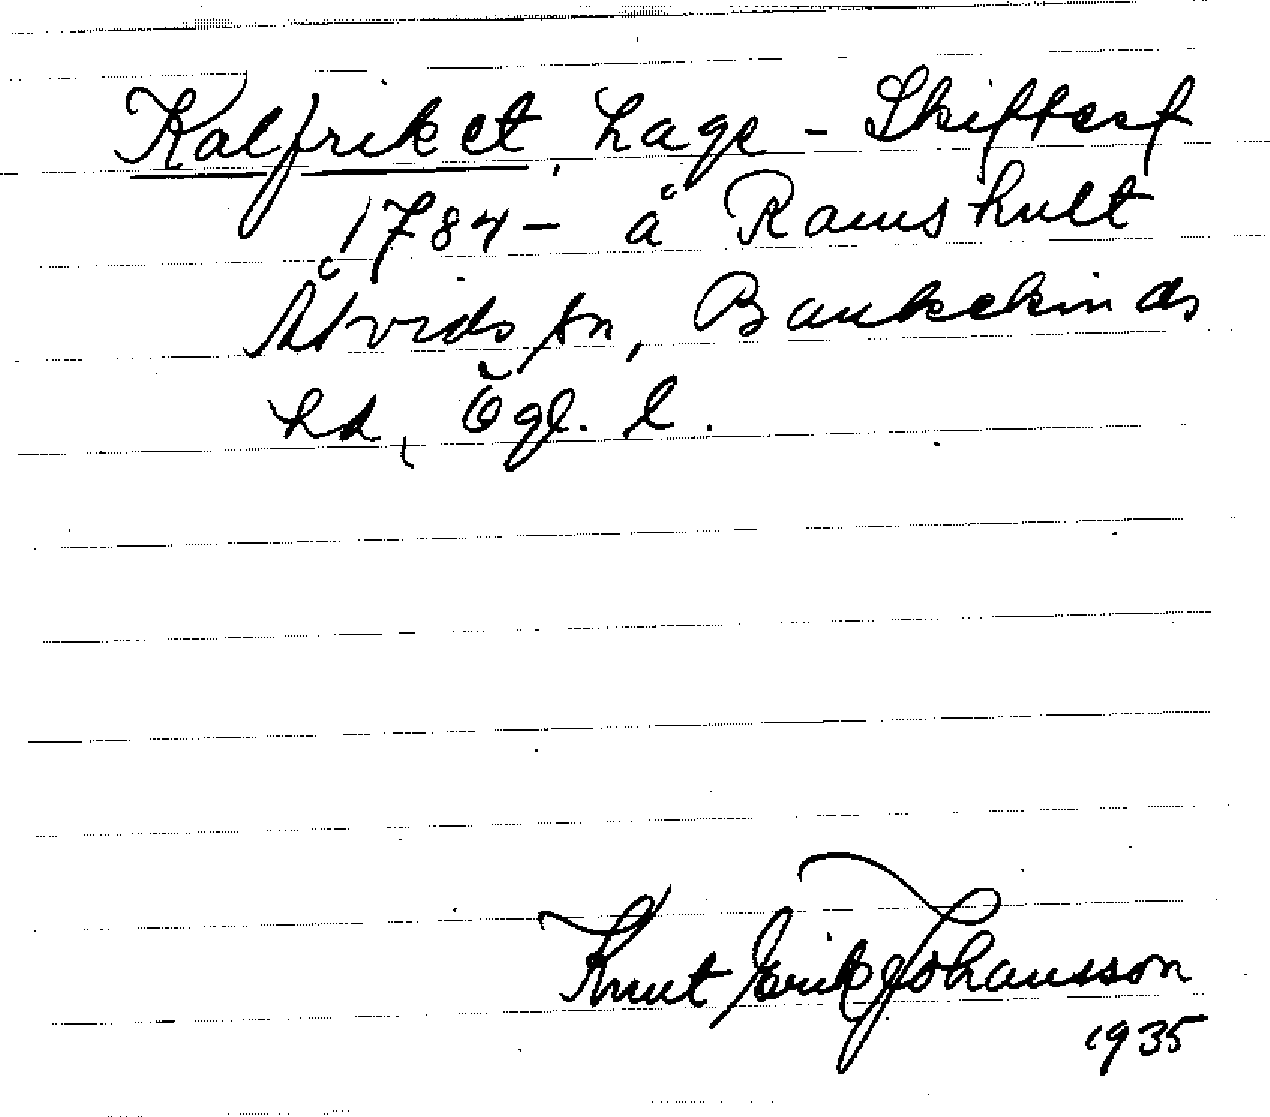 Kalfriket, hage - Skifteskf
1784 - å Ramshult
Åtvids sn, Bankekinds
hd, Ögl. l.
Knut Erik Johansson
1935